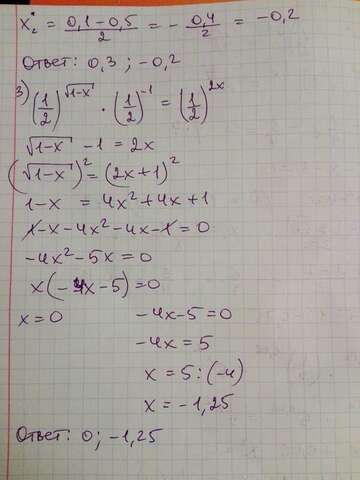 x₂ = (0,1 - 0,5)/2 = - 0,4/2 = -0,2
Ответ: 0,3 ; -0,2
3) (1/2)^√(1-x) · (1/2)^-1 = (1/2)^2x
√(1-x) - 1 = 2x
(√(1-x))² = (2x+1)²
1-x = 4x²+4x+1
1-x-4x²-4x-1=0
-4x²-5x=0
x(-4x-5)=0
x=0 -4x-5=0
-4x=5
x = 5:(-4)
x = -1,25
Ответ: 0; -1,25